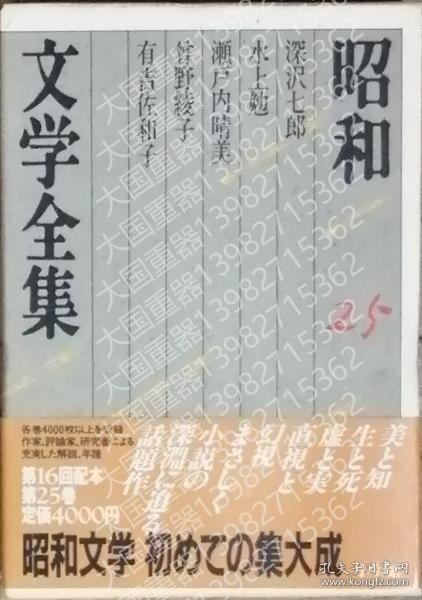 昭和
文学全集
深沢七郎
水上勉
瀬戸内晴美
曾野綾子
有吉佐和子
25
美と知
生と死
虚と実
直視と
幻視
まさしく
小説の
深淵に迫る
話題作
各巻4000枚以上を収録
作家、評論家、研究者による
充実した解説、年譜
第16回配本
第25巻
定価4000円
昭和文学 初めての集大成
大国重器13982715362
孔夫子旧书网
kongfz.com